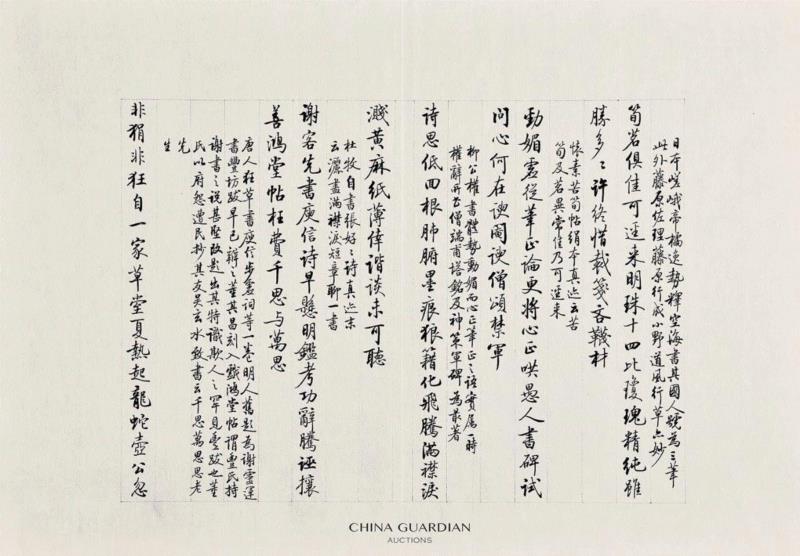 日本嵯峨帝橘逸势釋空海書其國人號為三筆
此外藤原佐理藤原行成小野道風行草亦妙
筍茗俱佳可逕来明珠十四比瓊瑰精純雖
勝多〻許終惜裁箋吝韈材
懷素苦筍帖绢本真迹云苦
筍及茗異常佳乃可逕来
勁媚虛從筆正論更將心正哄愚人書碑試
问心何在諛閹諛僧頌禁軍
柳公權書體勢勁媚而心正筆正之語實属一時
權辭耳其书僧端甫塔銘及神策軍碑為最著
诗思低回根肺腑墨痕狼籍化飛騰满襟淚
濺黄麻紙薄倖諧談未可聽
杜牧自書張好〻诗真迹末
云灑盡满襟淚短章聊一書
谢客先書庾信诗早懸明鑑考功辭騰诬攘
善鴻堂帖枉費千思与萬思
唐人狂草書庾信步虛词等一卷明人舊題為谢靈運
書豐坊跋早已辨之董其昌刻入戲鴻堂帖谓豐氏持
谢書之说甚堅改題出其特識欺人之罕見豐跋也董
氏以府怨遭民抄其友吴玄水致書云千思萬思思老
先
生
非狷非狂自一家草堂夏熱起龍蛇壺公忽
CHINA GUARDIAN
AUCTIONS